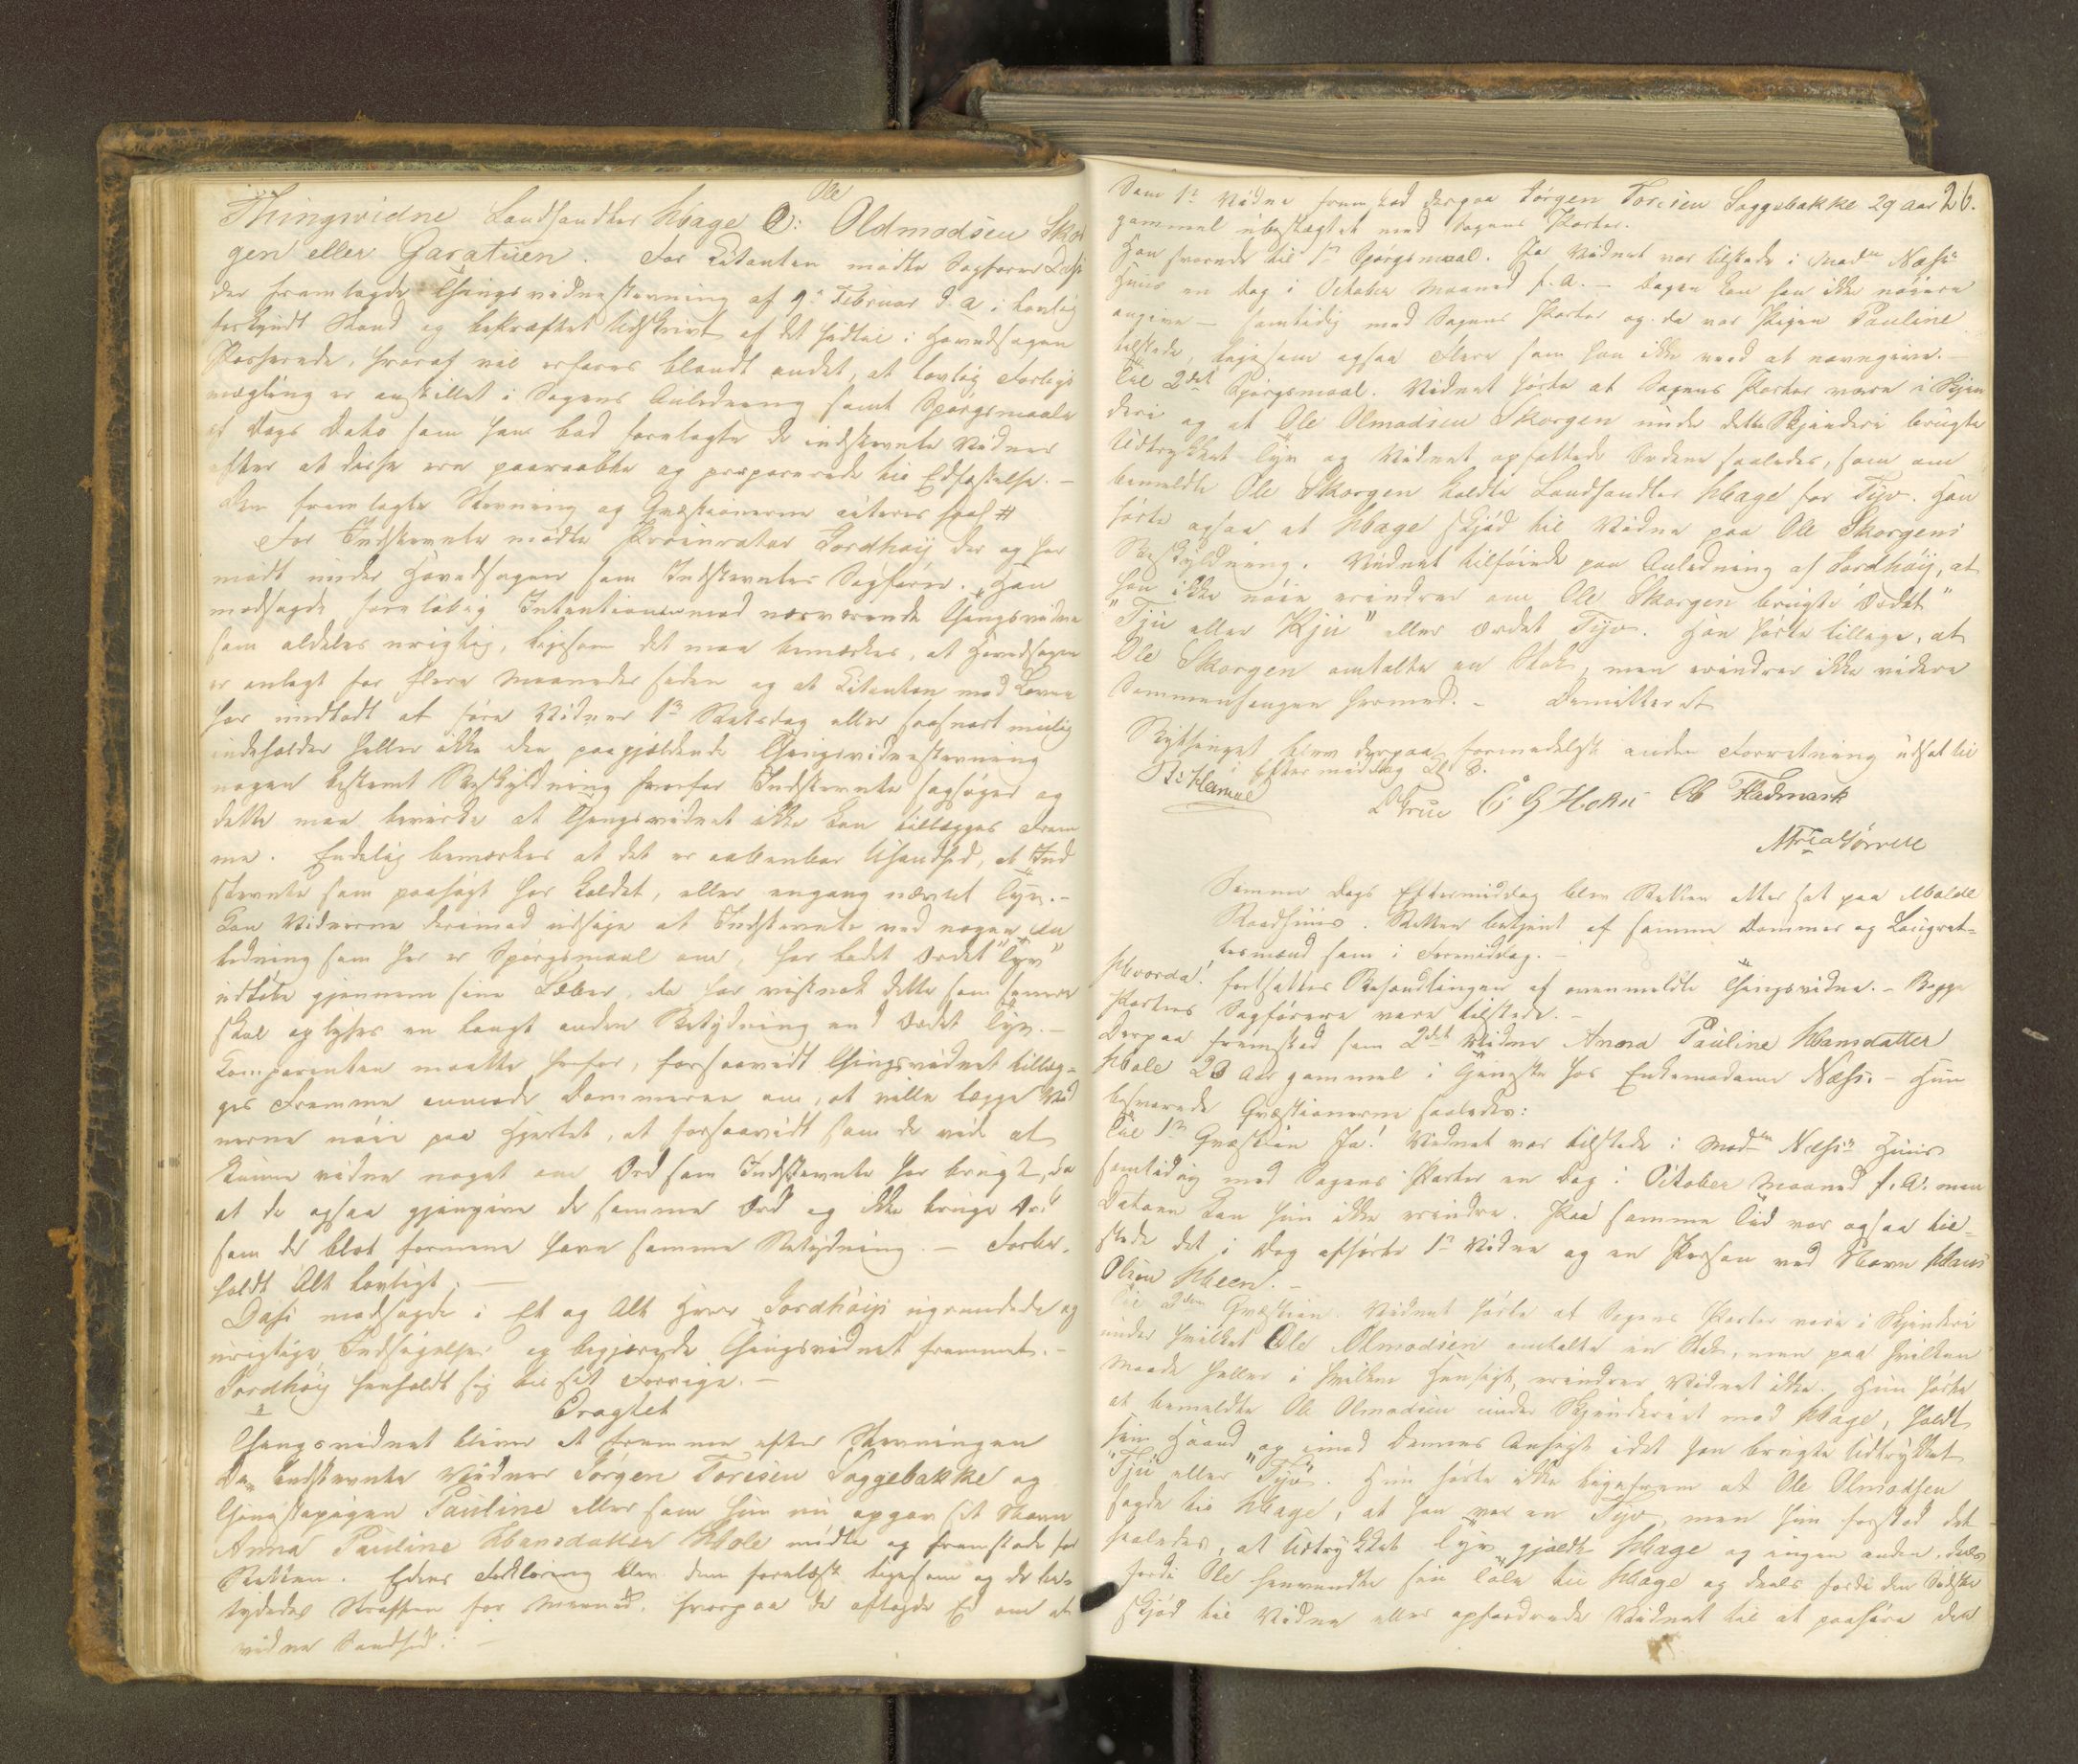 Thingsvidne Landhandler Hage C: Ole Oldmodsen Skor
gen eller Garatuen. For Citanten mødte Sagfører Dahl
der fremlagde Thingsvidnestevning af 9de Februar d. A. i lovlig
forkyndt Stand og bekræftet Udskrivt af det hidtil i Hovedsagen
Passerede, hvoraf vil erfares blandt andet, at lovlig Forligs
mægling er anstillet i Sagens Anledning samt Spørgsmaale
af Dags Dato som han bad forelagte de indstevnte Vidner
efter at disse ere paaraabte og præparerede til Edfæstelse. -
Den fremlagte Stevning og Qvæstionerne citeres saal #
For Indstevnte mødte Procurator Jordhøy der og har
mødt under Hovedsagen som Indstevntes Sagfører. Han
modsagde foreløbig Intentionen med nærværende Thingsvidne
som aldeles urigtig, ligesom det maa bemærkes, at Hovedsagen
er anlagt for flere Maaneder siden og at Citanten mod Loven
har undladt at føre Vidner 1ste Retsdag eller saasnart mulig
indeholder heller ikke den paagjældende Thingsvidnestevning
nogen bestemt Beskyldning hvorfor Indstevnte sagsøges og
dette maa bevirke at Thingsvidnet ikke kan tillægges Frem
me. Endelig bemærkes at det er aabenbar Usandhed, at Ind
stevnte som paasagt har kaldet, eller engang nævnt Tyv. -
Kan Vidnerne derimod udsige at Indstevnte ved nogen An
ledning som her er Spørgsmaal om, har ladet Ordet "Tyv"
udløbe gjennem sine Læber, da har vistnok dette som senere
skal oplyses en langt anden Betydning end Ordet Tyv. -
Comparenten maatte herfor, forsaavidt Thingsvidnet tillæg-
ges Fremme anmode Dommeren om, at ville lægge Vid
nerne nøie paa Hjertet, at forsaavidt som de vide at
kunne vidne noget om Ord som Indstevnte har brugt, da
at de ogsaa gjengive de samme Ord og ikke bruge Ord
som de blot formene have samme Betydning. - Forbe-
holdt Alt lovligt. -
Dahl modsagde i Et og Alt Herr Jordhøys ugrundede og
urigtige Indsigelser og begjærede Thingsvidnet fremmet. -
Jordhøy henholdt sig til sit Forrige. -
Eragtet
Thingsvidnet bliver at fremme efter Stevningen
De indstevnte Vidner Jørgen Toresen Soggebakke og
Thingstepigen Pauline eller som hun nu opgav sit Navn
Anna Pauline Hansdatter Hole mødte og fremstode for
Retten. Edens Forklaring blev dem forelæst ligesom og de be-
tydedes Straffen for Meened, hvorpaa de aflagde Ed om at
vidne Sandhed. -
Som 1ste Vidne fremstod derpaa Jørgen Toresen Soggebakke 29 Aar 26.
gammel ubeslægtet med Sagens Parter.
Han svarede til 1ste Spørgsmaal. Ja Vidnet var tilstede i Madm Næss's
Huus en Dag i October Maaned f. A. - Dagen kan han ikke nøiere
angive - samtidig med Sagens Parter og da var Pigen Pauline
tilstede, ligesom ogsaa Flere som han ikke veed at navngive. -
Til 2det Spørgsmaal. Vidnet hørte at Sagens Parter vare i Skjen
deri og at Ole Olmodsen Skorgen under dette Skjenderi brugte
Udtrykket Tyv og Vidnet opfattede Ordene saaledes, som om
bemeldte Ole Skorgen kaldte Landhandler Hage for Tyv. Han
hørte ogsaa at Hage skjød til Vidne paa Ole Skorgens
Beskyldning. Vidnet tilføiede paa Anledning af Jordhøy, at
han ikke nøie erindrer om Ole Skorgen brugte Ordet "
"Tju eller Kju" eller Ordet Tyv. Han hørte tillige, at
Ole Skorgen omtalte en Stok, men erindrer ikke videre
Sammenhængen hermed. - Demitteret
Bythinget blev derpaa formedelst anden Forretning udsat til
i Eftermiddag Kl 3.
C G Hoku Ob Stadmark
Samme Dags Eftermiddag blev Retten atter sat paa Molde
Raadhuus. Retten betjent af samme Dommer og Laugret-
tesmænd som i Formiddag. -
Hvorda! fortsattes Behandlingen af ovenmeldte Thingsvidne. - Begge
Parters Sagførere vare tilstede. -
Derpaa fremstod som 2det Vidne Anna Pauline Hansdatter
Hole 20 Aar gammel i Tjeneste hos Enkemadame Næss. - Hun
besvarede Qvæstionerne saaledes:
Til 1ste Qvæstion Ja! Vidnet var tilstede i Madm Næss's Huus
samtidig med Sagens Parter en Dag i October Maaned f. A. men
Datoen kan hun ikke erindre. Paa samme Tid var ogsaa til-
stede det i Dag afhørte 1ste Vidne og en Person ved Navn Hans
Olsen Heen. -
Til 2den Qvæstion. Vidnet hørte at Sagens Parter vare i Skjenderi
under hvilket Ole Olmodsen omtalte en Stok, men paa hvilken
Maade heller i hvilken Hensigt erindrer Vidnet ikke. Hun hørte
at bemeldte Ole Olmodsen under Skjenderiet mod Hage, holdt
sin Haand op imod dennes Ansigt idet han brugte Udtrykket
"Tju" eller "Tyv". Hun hørte ikke ligefrem at Ole Olmodsen
sagde til Hage, at han var en Tyv, men hun forstod det
saaledes, at Udtrykket Tyv gjældte Hage og ingen anden, deels
fordi Ole henvendte sin Tale til Hage og deels fordi den Sidste
skjød til Vidne eller opfordrede Vidnet til at paahøre det